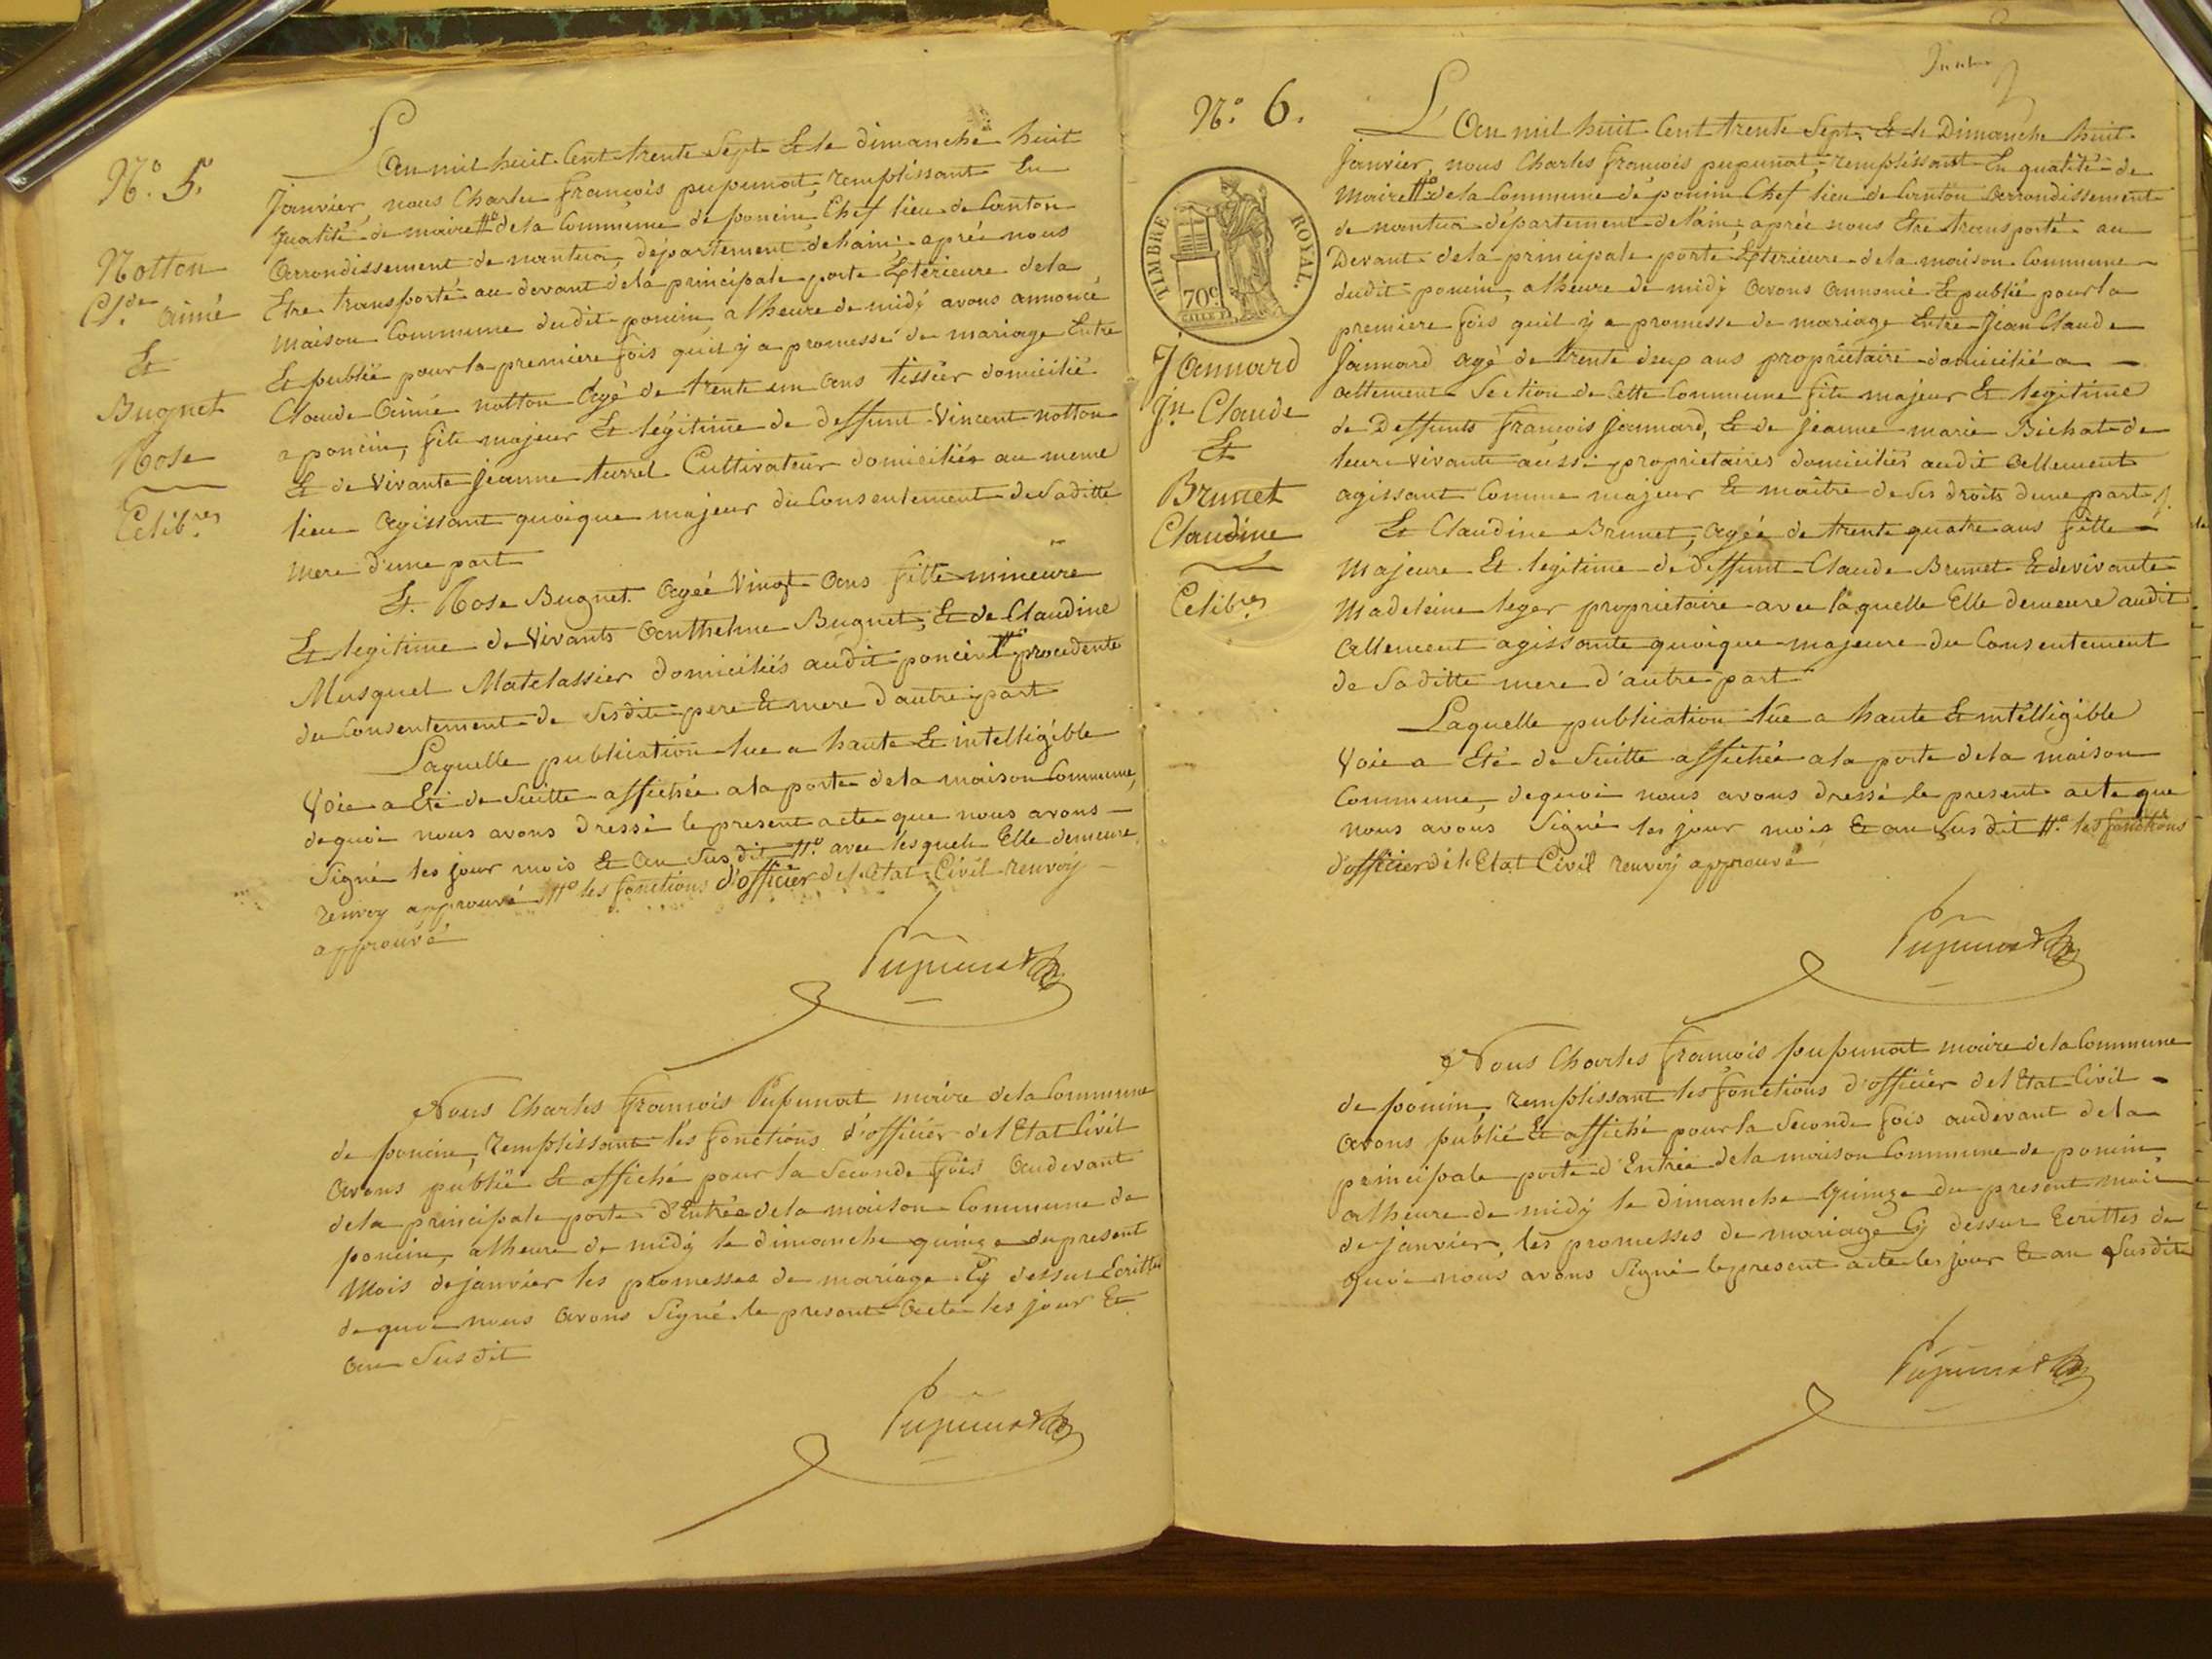 N.o 5.
Notton
Cl.de aimé
Et
Bugnet
Rose
Celib.res
L'an mil huit Cent trente Sept Et le dimanche huit
Janvier, nous Charles françois pupunat, remplissant En
qualité de maire #o dela Commune de poncin Chef lieu de Canton
arrondissement de nantua, département delain, aprés nous
Etre transporté au devant dela principale porte Exterieure dela
maison Commune dudit poncin, a lheure de midy avons annoncé
Et publié pour la premiere fois quil y a promesse de mariage Entre
Claude aimé notton agé de trente un ans tissier domicilié
a poncin, fils majeur Et légitime de deffunt Vincent notton
Et de vivante jeanne turrel Cultivateur domiciliés au meme
lieu agissant quoique majeur du Consentement de Saditte
mere d'une part
Et Rose Bugnet agée Vingt ans fille mineure
Et legitime de Vivants anthelme Bugnet, Et de Claudine
Musquet Matelassier domiciliés audit poncin #o procedente
du Consentement de Sesdits pere Et mere d'autre part
Laquelle publication lue a haute Et intelligible
Voie a Eté de Suitte affichée ala porte dela maison Commune,
dequoi nous avons dressé le present acte que nous avons
Signé les jour mois Et an Susdit #o avec lesquels Elle demeure
renvoy approuvé #o les fonctions d'officier de l'Etat Civil renvoy
approuvé
Pupunat
Nous Charles françois Pupunat maire dela Commune
de poncin, remplissant les fonctions d'officier del Etat Civil
avons publié Et affiché pour la Seconde fois audevant
dela principale porte d'Entrée dela maison Commune de
poncin, alheure de midy le dimanche quinze du present
Mois dejanvier les promesses de mariage Cy dessus Ecrittes
dequoi nous avons Signé le present acte les jour Et
an Susdit
Pupunat
N.o 6.
TIMBRE ROYAL.
70c
Joannard
Jn Claude
Et
Brunet
Claudine
Celib.res
L'an mil huit Cent trente Sept Et le Dimanche huit
Janvier, nous Charles françois pupunat, remplissant En qualité de
Maire #o dela Commune de poncin Chef lieu de Canton arrondissement
de nantua département delain, aprés nous Etre transporté au
Devant dela principale porte Exterieure dela maison Commune
dudit poncin, alheure de midy avons annoncé Et publié pour la
premiere fois quil y a promesse de mariage Entre Jean Claude
Joannard agé de trente deux ans propriétaire domicilié a
allement Section de Cette Commune fils majeur Et legitime
de Deffunts françois Joannard, Et de jeanne marie Bichat de
leurs vivants aussi proprietaires domiciliés audit allement
agissant Comme majeur Et maitre de Ses droits dune part,
Et Claudine Brunet, agée de trente quatre ans fille
Majeure Et legitime de deffunt Claude Brunet Et devivante
Madeleine leger proprietaire avec laquelle Elle demeure audit
allement agissante quoique majeure du Consentement
de Saditte mere d'autre part
Laquelle publication lue a haute Et intelligible
Voie a Eté de Suitte affichée ala porte dela maison
Commune, dequoi nous avons dressé le present acte que
nous avons Signé les jour mois Et an Susdit #o les fonctions
d'officier de l'Etat Civil renvoy approuvé
Pupunat
Nous Charles françois pupunat maire dela Commune
de poncin, remplissant les fonctions d'officier del Etat Civil
avons publié Et affiché pour la Seconde fois audevant dela
principale porte d'Entrée dela maison Commune de poncin,
alheure de midy le dimanche quinze du present mois
de janvier, les promesses de mariage Cy dessus Ecrittes de
quoi nous avons Signé le present acte les jour Et an Susdits
Pupunat